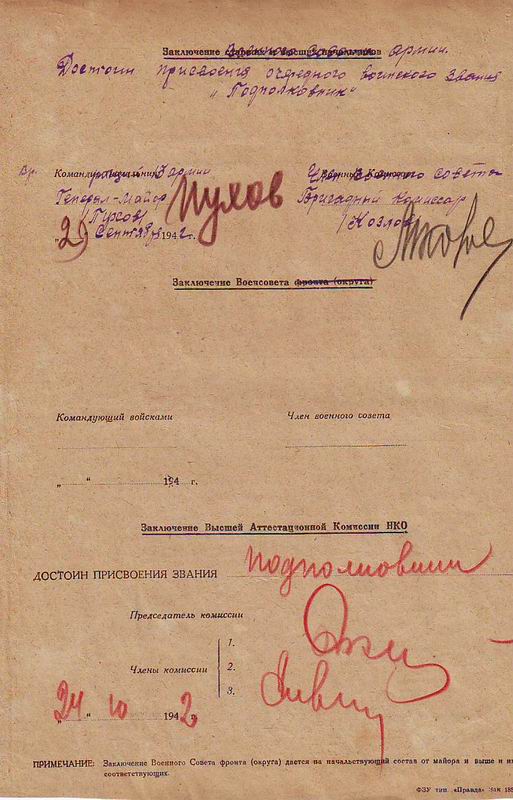 Заключение старших и высших начальников Военного совета армии.
Достоин присвоения очередного воинского звания
"Подполковник"
Вр. Командующий 13 армии
Член военного совета
Генерал-Майор Пухов
Бригадный комиссар
/Пухов/
/Козлов/
"2" Сентября 1942 г.
Заключение Военсовета фронта (округа)
Командующий войсками
Член военного совета
" " 194 г.
Заключение Высшей Аттестационной Комиссии НКО
ДОСТОИН ПРИСВОЕНИЯ ЗВАНИЯ подполковник
Председатель комиссии
1.
Члены комиссии 2.
3.
24 " 10 1942
ПРИМЕЧАНИЕ: Заключение Военного Совета фронта (округа) дается на начальствующий состав от майора и выше и им
соответствующих.
ФЗУ тип. «Правда» Зак 185